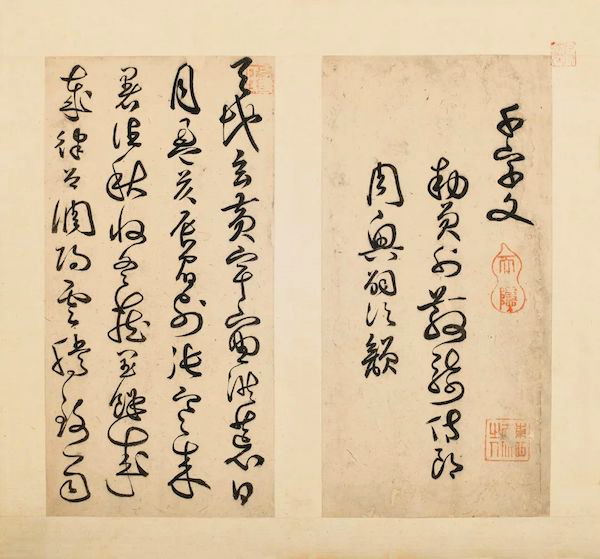 千字文
勅員外散騎侍郎
周興嗣次韻
天地玄黃宇宙洪荒日
月盈昃辰宿列張寒來
暑往秋收冬藏閏餘成
歲律召調陽雲騰致雨